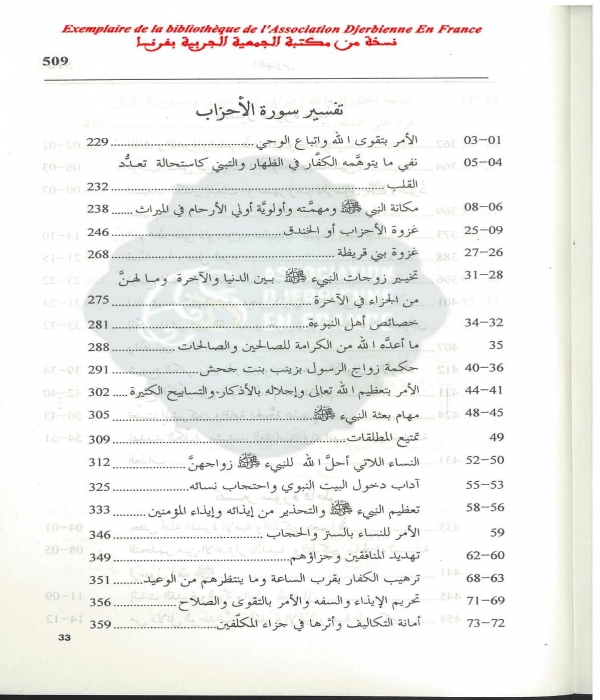 Exemplaire de la bibliothèque de l'Association Djerbienne En France
نسخة من مكتبة الجمعية الجربية بفرنسا
509
تفسير سورة الأحزاب
03-01 الأمر بتقوى الله واتباع الوحي 229
05-04 نفي ما يتوهّمه الكفّار في الظهار والتبني كاستحالة تعدُّد
القلب 232
08-06 مكانة النبي ﷺ ومهمّته وأولويَّة أولي الأرحام في الميراث 238
25-09 غزوة الأحزاب أو الخندق 246
27-26 غزوة بني قريظة 268
31-28 تخيير زوجات النبيء ﷺ بين الدنيا والآخرة وما لهنَّ
من الجزاء في الآخرة 275
34-32 خصائص أهل النبوءة 281
35 ما أعدَّه الله من الكرامة للصالحين والصالحات 288
40-36 حكمة زواج الرسول بزينب بنت جحش 291
44-41 الأمر بتعظيم الله تعالى وإجلاله بالأذكار والتسابيح الكثيرة 302
48-45 مهام بعثة النبيء ﷺ 305
49 تمتيع المطلقات 309
52-50 النساء اللاتي أحلَّ الله للنبيء ﷺ زواجهنَّ 312
55-53 آداب دخول البيت النبوي واحتجاب نسائه 325
58-56 تعظيم النبيء ﷺ والتحذير من إيذائه وإيذاء المؤمنين 333
59 الأمر للنساء بالستر والحجاب 346
62-60 تهديد المنافقين وجزاؤهم 349
68-63 ترهيب الكفار بقرب الساعة وما ينتظرهم من الوعيد 351
71-69 تحريم الإيذاء والسفه والأمر بالتقوى والصلاح 356
73-72 أمانة التكاليف وأثرها في جزاء المكلّفين 359
33
ASSOCIATION
DJERBIENNE
EN FRANCE